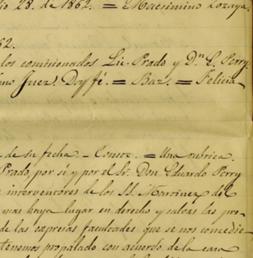 io 23. de 1862. = Maximino Lozaya.
62.
los comisionados Lic. Prado y Dn. E. Perry
Juez. Doy fé. = Baz. = Felicia
de su fecha. - Conoz. = Una rubrica
Prado, por sí y por el Sr. Don Eduardo Perry
interventores de los SS. Martinez del
mas haya lugar en derecho y
de las espresas facultades que se nos
tenemos propalado con acuerdo de la casa